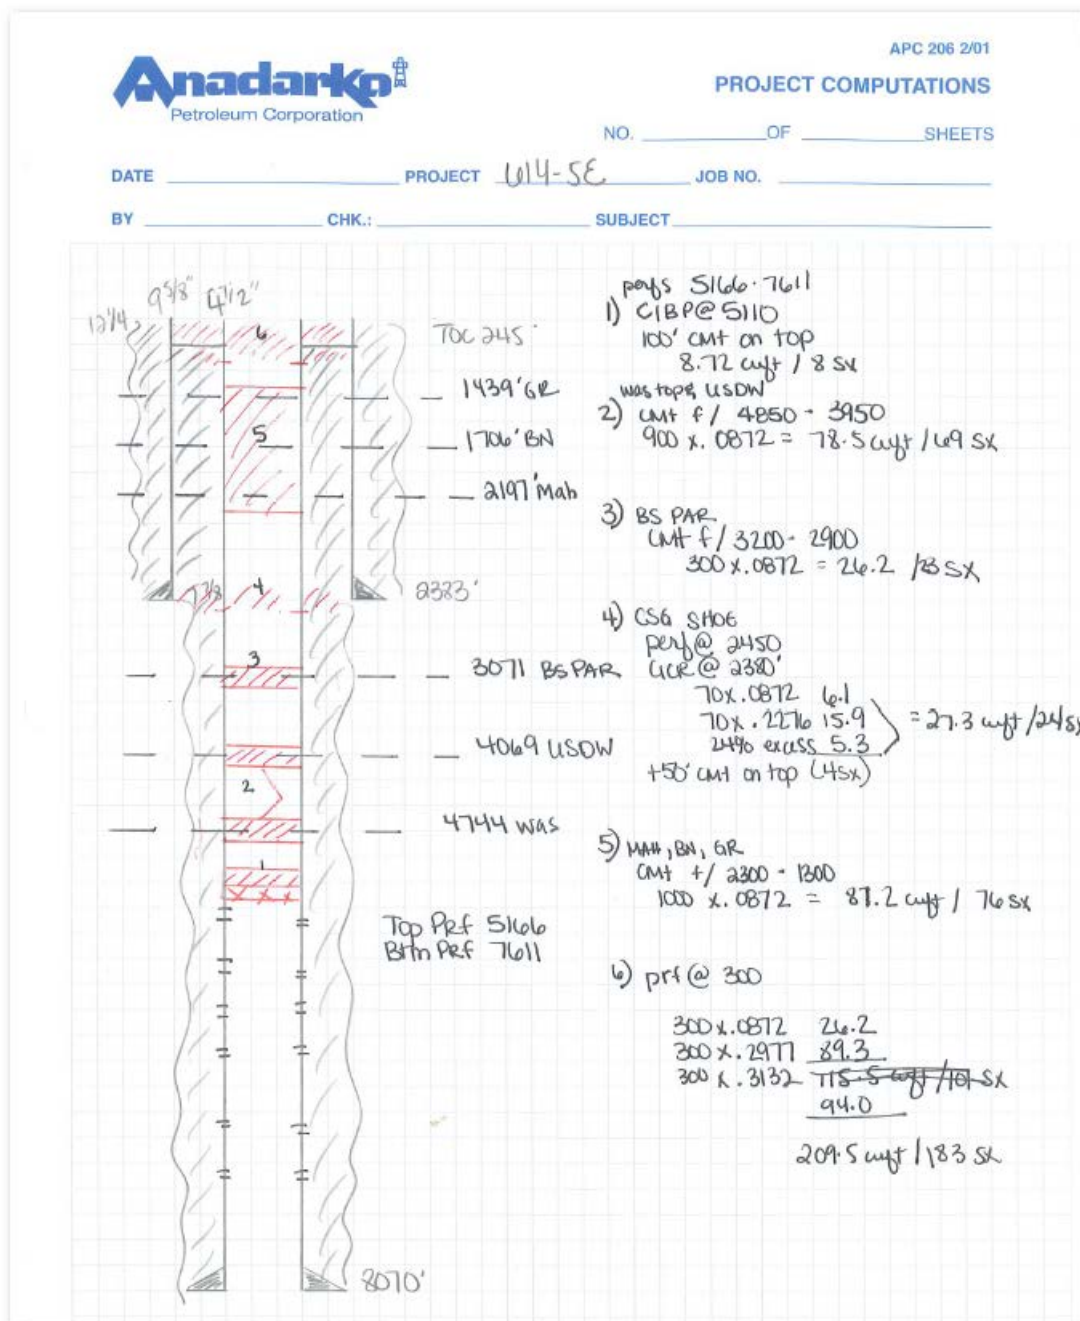 APC 206 2/01
Anadarko
Petroleum Corporation
PROJECT COMPUTATIONS
NO. OF SHEETS
DATE PROJECT W14-5E JOB NO.
BY CHK.: SUBJECT
12 1/4 9 5/8" 4 1/2"
6
TOC 245'
1439' GR
5
1706' BN
2197' Mah
7 7/8 4
2383'
3
3071 BS PAR
4069 USDW
2
4744 was
1
Top Prf 5166
Btm Prf 7611
8070'
perfs 5166-7611
1) CIBP @ 5110
100' cmt on top
8.72 cuft / 8 sx
was top & USDW
2) cmt f/ 4850 - 3950
900 x .0872 = 78.5 cuft / 69 sx
3) BS PAR
cmt f/ 3200 - 2900
300 x .0872 = 26.2 / 23 sx
4) CSG SHOE
perf @ 2450
CICR @ 2380'
70 x .0872 6.1
70 x .2276 15.9
24% excess 5.3
= 27.3 cuft / 24 sx
+50' cmt on top (4sx)
5) MAH, BN, GR
cmt f/ 2300 - 1300
1000 x .0872 = 87.2 cuft / 76 sx
6) prf @ 300
300 x .0872 26.2
300 x .2977 89.3
300 x .3132 115.5 cuft / 101 sx
94.0
209.5 cuft / 183 sx